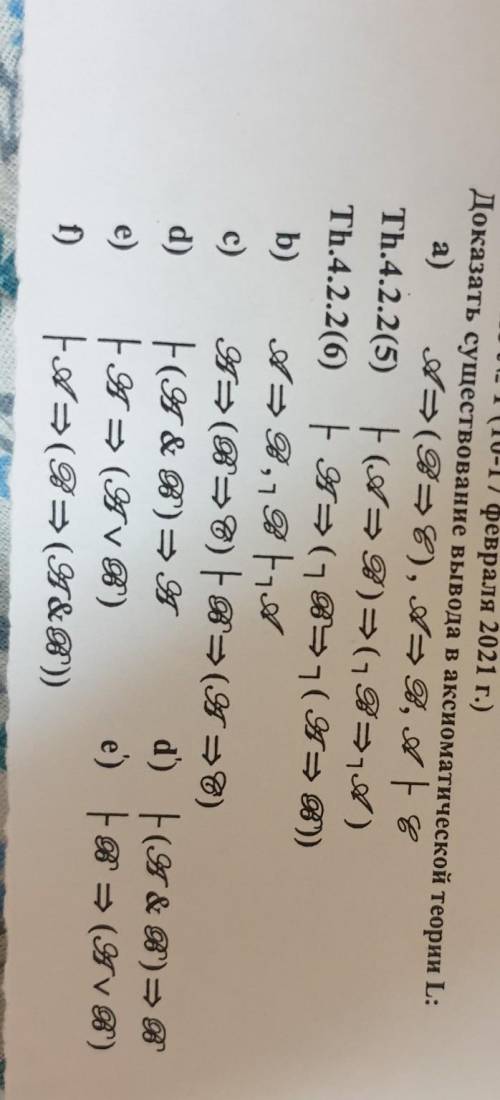 1 (16-17 февраля 2021 г.)
Доказать существование вывода в аксиоматической теории L:
a) 𝒜 ⇒ (ℬ ⇒ 𝒞), 𝒜 ⇒ ℬ, 𝒜 ⊢ 𝒞
Th.4.2.2(5) ⊢ (𝒜 ⇒ ℬ) ⇒ (¬ ℬ ⇒ ¬ 𝒜)
Th.4.2.2(6) ⊢ 𝒜 ⇒ (¬ ℬ ⇒ ¬ (𝒜 ⇒ ℬ))
b) 𝒜 ⇒ ℬ, ¬ ℬ ⊢ ¬ 𝒜
c) 𝒜 ⇒ (ℬ ⇒ 𝒞) ⊢ ℬ ⇒ (𝒜 ⇒ 𝒞)
d) ⊢ (𝒜 & ℬ) ⇒ 𝒜 d') ⊢ (𝒜 & ℬ) ⇒ ℬ
e) ⊢ 𝒜 ⇒ (𝒜 ∨ ℬ) e') ⊢ ℬ ⇒ (𝒜 ∨ ℬ)
f) ⊢ 𝒜 ⇒ (ℬ ⇒ (𝒜 & ℬ))